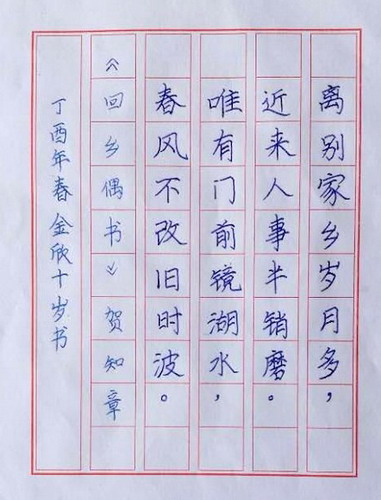 离别家乡岁月多，
近来人事半销磨。
唯有门前镜湖水，
春风不改旧时波。
《回乡偶书》贺知章
丁酉年春 金欣十岁书